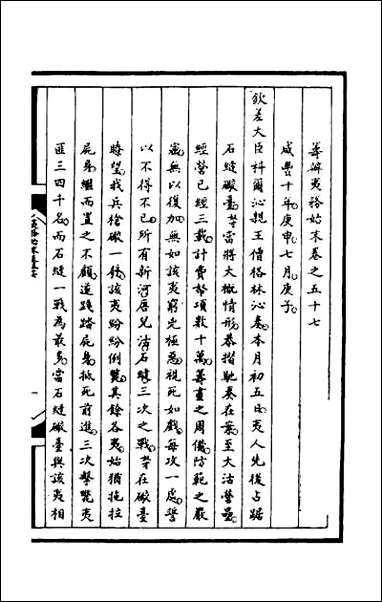 籌辦夷務始末卷之五十七
咸豐十年庚申七月庚子
欽差大臣科爾沁親王僧格林沁奏本月初五日夷人先後占踞
石縫礮臺等當將大概情形恭摺馳奏在案至大沽營壘
經營已經三載計費帑項數十萬籌畫之周備防範之嚴
密無以復加無如該夷窮兇極惡視死如戲每攻一處誓
以不得不已所有新河唐兒沽石縫三次之戰等在礮臺
瞭望我兵槍礮一發該夷紛紛倒斃其餘各夷始猶拖拉
屍身繼而置之不顧遂踐踏屍身抵死前進三次擊斃夷
匪三四千名而石縫一戰為最多當石縫礮臺與該夷相
夷務始末卷五七
一